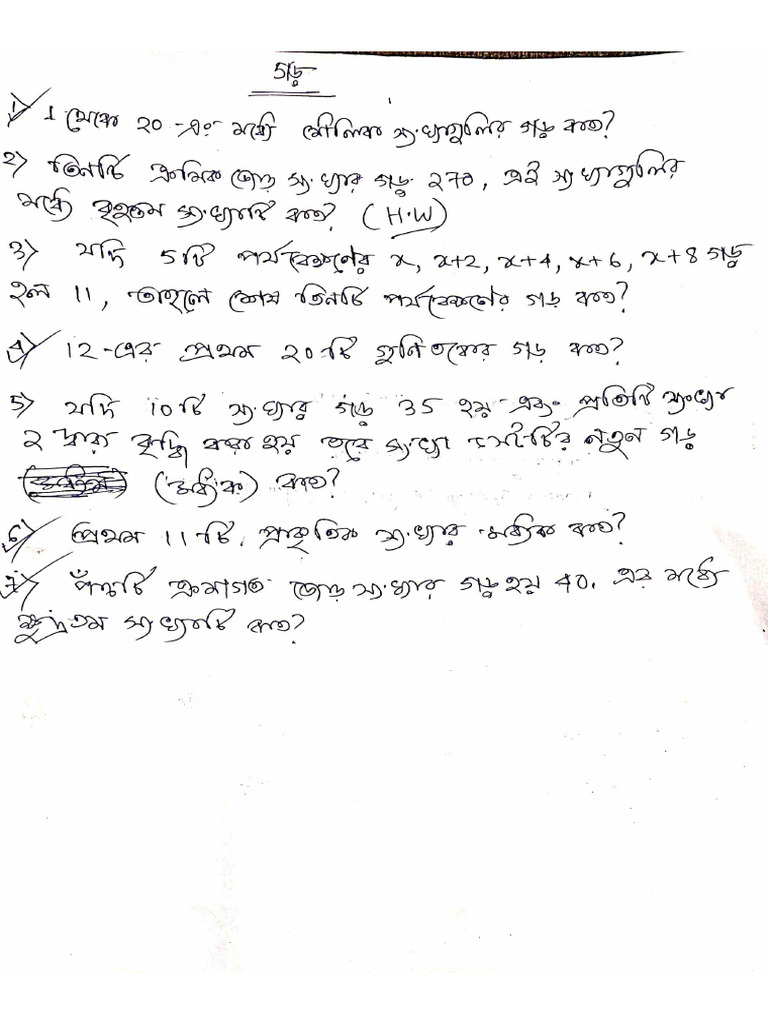 গড়
1) 1 থেকে ২০-এর মধ্যে মৌলিক সংখ্যাগুলির গড় কত?
2) তিনটি ক্রমিক জোড় সংখ্যার গড় ২৭০, এই সংখ্যাগুলির
মধ্যে বৃহত্তম সংখ্যাটি কত? (H.W)
3) যদি 5টি পর্যবেক্ষণের x, x+2, x+4, x+6, x+8 গড়
হল 11, তাহলে শেষ তিনটি পর্যবেক্ষণের গড় কত?
4) 12-এর প্রথম ২০-টি গুনিতকের গড় কত?
5) যদি 10টি সংখ্যার গড় 35 হয় এবং প্রতিটি সংখ্যা
২ দ্বারা বৃদ্ধি করা হয় তবে সংখ্যা সেটটির নতুন গড়
(মধ্যিক) কত?
6) প্রথম 11-টি প্রাকৃতিক সংখ্যার মধ্যিক কত?
7) পাঁচটি ক্রমাগত জোড় সংখ্যার গড় হয় 40. এর মধ্যে
ক্ষুদ্রতম সংখ্যাটি কত?